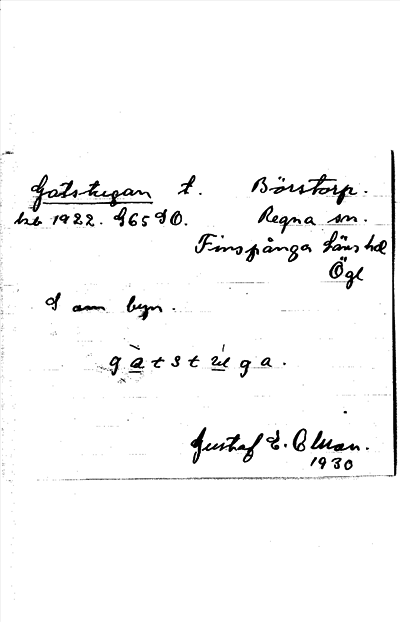 Gatstugan t. Börstorp.
kb 1922. G65SO. Regna sn.
Finspånga läns hd
Ögl
S om byn.
gàtstúga.
Gustaf E. Olsson.
1930